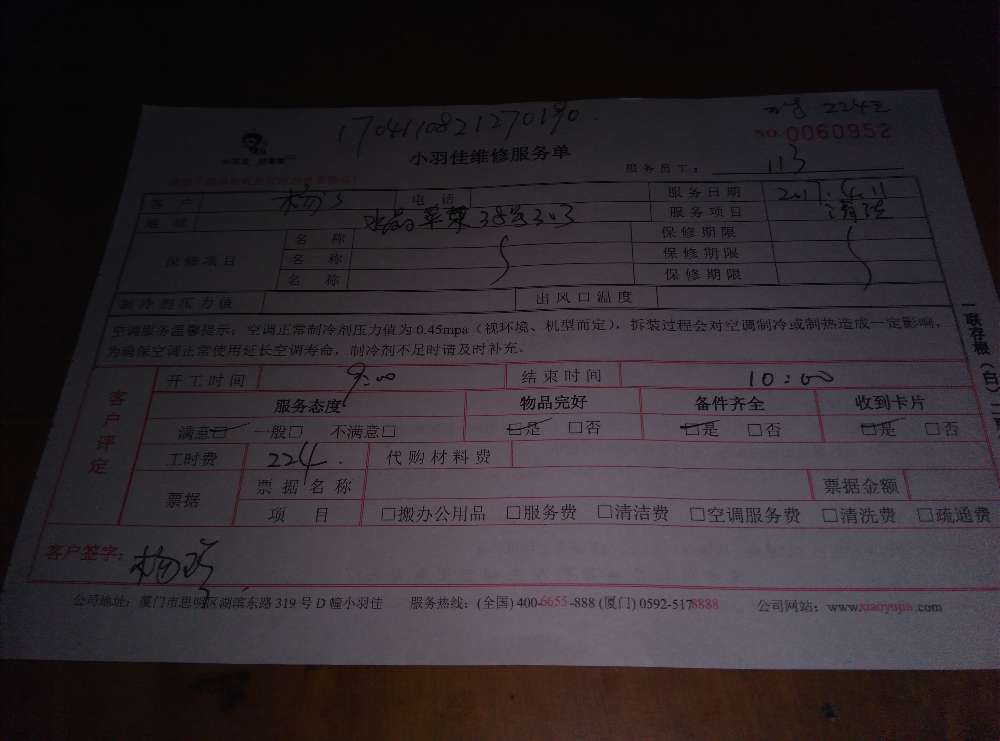 1704110821270190
224元
NO.0060952
小羽佳维修服务单
服务员工: 113
客户 杨 电话 服务日期 2017.4.11
地址 38 303 服务项目 清洗
保修项目 名称 保修期限
名称 保修期限
名称 保修期限
制冷剂压力值 出风口温度
空调服务温馨提示:空调正常制冷剂压力值为0.45mpa(视环境、机型而定),拆装过程会对空调制冷或制热造成一定影响,
为确保空调正常使用延长空调寿命,制冷剂不足时请及时补充。
一联存根(白)
客户评定
开工时间 9:00 结束时间 10:00
服务态度 物品完好 备件齐全 收到卡片
满意☑ 一般□ 不满意□ ☑是 □否 ☑是 □否 ☑是 □否
工时费 224. 代购材料费
票据 票据名称 票据金额
项目 □搬办公用品 □服务费 □清洁费 □空调服务费 □清洗费 □疏通费
客户签字: 杨
公司地址:厦门市思明区湖滨东路319号D幢小羽佳 服务热线:(全国)400-6655-888(厦门)0592-5178888 公司网站:www.xiaoyujia.com